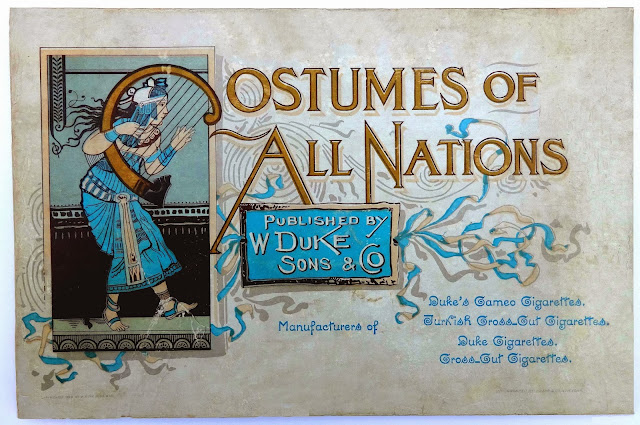 COSTUMES OF
ALL NATIONS
PUBLISHED BY
W DUKE
SONS & CO
Manufacturers of
Duke's Cameo Cigarettes.
Turkish Cross-Cut Cigarettes.
Duke Cigarettes.
Cross-Cut Cigarettes.